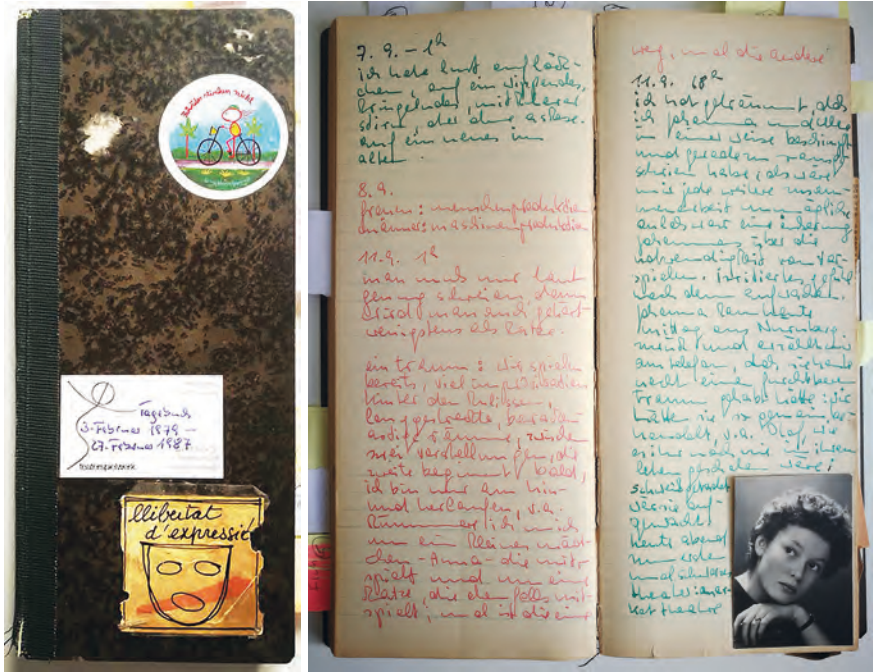 Radler stinken nicht
Tagebuch
3. Februar 1979 –
27. Februar 1987
llibertat
d'expressió
7. 9. – 1h
ich habe lust auf löck-
chen, auf ein wippendes,
kringelndes, mit
stirn, der
auf ein neues im
alten.
8. 9.
frauen: menschenproduktion
männer: maschinenproduktion
11. 9. 1h
man muß nur laut
genug schreien, dann
wird man auch gehört
wenigstens als Katze.
ein traum: wir spielen
bereits, viel improvisation
hinter den kulissen,
langgestreckte,
artige räume, zwischen
zwei vorstellungen, die
zweite beginnt bald,
ich bin nur am hin-
und herlaufen, v.a.
kümmer ich mich
um ein kleines mäd-
chen – Anna – die mit-
spielt und um eine
Katze, die ebenfalls mit-
spielt, mal ist die eine
weg, mal die andre
11. 9. 18h
ich hab geträumt, daß
ich johanna
in einer weise beschimpft
und geradezu
schrien habe, als wäre
mir jede weitere zusam-
menarbeit unmöglich
anlass war eine äußerung
johannas über die
notwendigkeit von vor-
spielen. irritiertes gefühl
nach dem aufwachen.
johanna kam heute
mittag aus Nürnberg
zurück und erzählt mir
am telefon, daß sie heute
nacht einen furchtbaren
traum gehabt hätte: wir
hätten sie so gemein be-
handelt, v.a. Olaf, wie
es ihr noch nie in ihrem
leben geschehen wäre!
schweißgebadet
wär sie auf-
gewacht.
heute abend
zum ersten
mal
theater:
theater